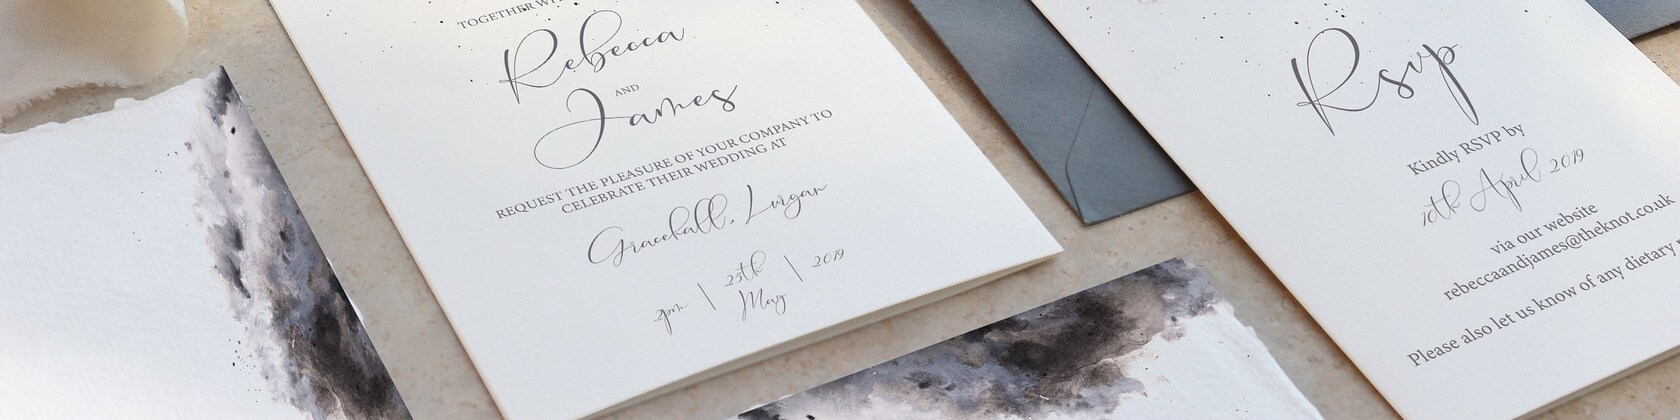 TOGETHER WI
Rebecca
AND
James
REQUEST THE PLEASURE OF YOUR COMPANY TO
CELEBRATE THEIR WEDDING AT
Gracehall, Lurgan
2pm \ 25th May \ 2019
Rsvp
Kindly RSVP by
10th April 2019
via our website
rebeccaandjames@theknot.co.uk
Please also let us know of any dietary